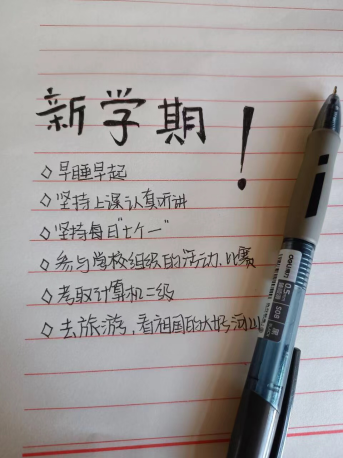 新学期!
◇早睡早起
◇坚持上课认真听讲
◇坚持每日"七个一"
◇参与学校组织的活动、比赛
◇考取计算机二级
◇去旅游,看祖国的大好河山
deli
0.5
S08